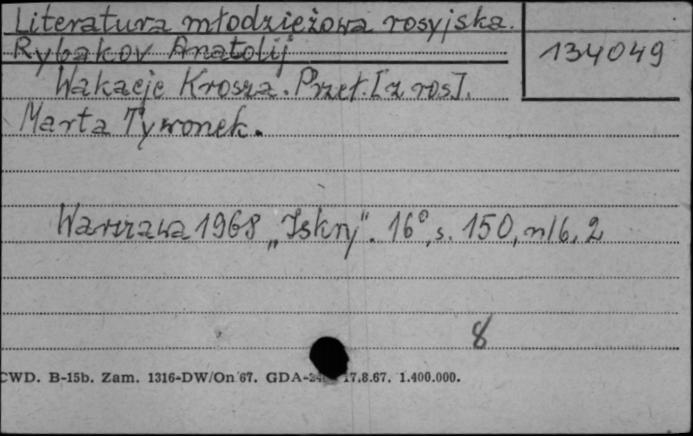 Literatura młodzieżowa rosyjska.
Rybakov Anatolij
134049
Wakacje Krosza. Przeł. [z ros].
Marta Tywonek.
Warszawa 1968 „Iskry". 16°, s. 150, nlb. 2
8
CWD. B-15b. Zam. 1316-DW/On 67. GDA- 17.8.67. 1.400.000.